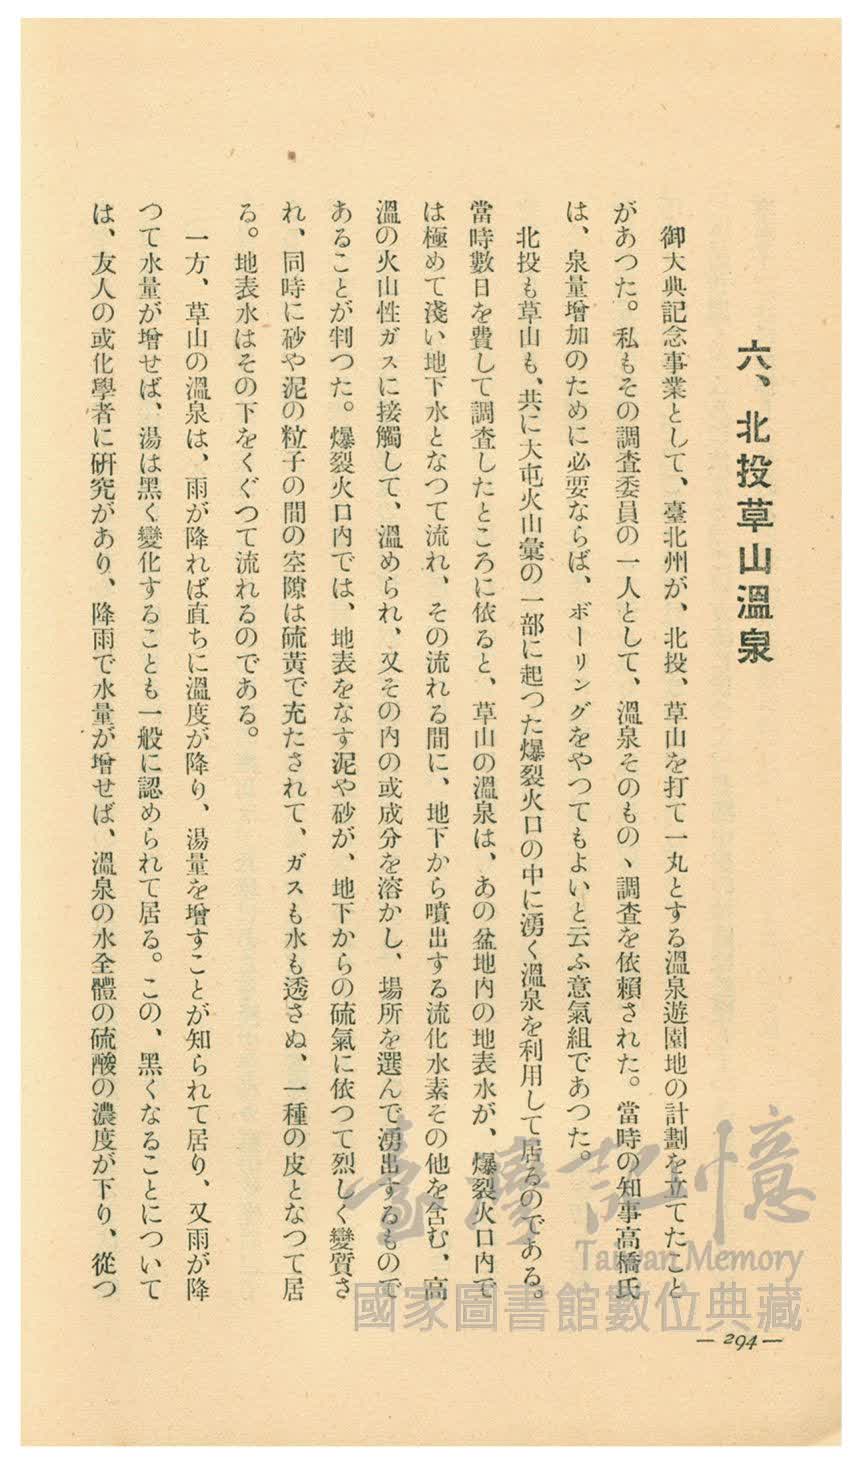 六、北投草山溫泉
御大典記念事業として、臺北州が、北投、草山を打て一丸とする溫泉遊園地の計劃を立てたこと
があつた。私もその調査委員の一人として、溫泉そのものヽ調査を依賴された。當時の知事高橋氏
は、泉量增加のために必要ならば、ボーリングをやつてもよいと云ふ意氣組であつた。
北投も草山も、共に大屯火山彙の一部に起つた爆裂火口の中に湧く溫泉を利用して居るのである。
當時數日を費して調査したところに依ると、草山の溫泉は、あの盆地内の地表水が、爆裂火口内で
は極めて淺い地下水となつて流れ、その流れる間に、地下から噴出する流化水素その他を含む、高
溫の火山性ガスに接觸して、溫められ、又その内の或成分を溶かし、場所を選んで湧出するもので
あることが判つた。爆裂火口内では、地表をなす泥や砂が、地下からの硫氣に依つて烈しく變質さ
れ、同時に砂や泥の粒子の間の空隙は硫黃で充たされて、ガスも水も透さぬ、一種の皮となつて居
る。地表水はその下をくぐつて流れるのである。
一方、草山の溫泉は、雨が降れば直ちに溫度が降り、湯量を增すことが知られて居り、又雨が降
つて水量が增せば、湯は黑く變化することも一般に認められて居る。この、黑くなることについて
は、友人の或化學者に硏究があり、降雨で水量が增せば、溫泉の水全體の硫酸の濃度が下り、從つ
— 294 —
臺灣記憶
Taiwan Memory
國家圖書館數位典藏